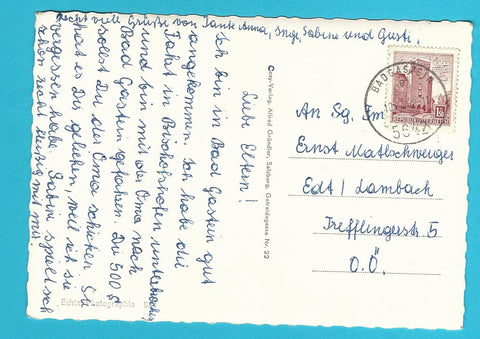 Recht viel Grüße von Tante Anna, Inge, Sabine und Gusti.
Liebe Eltern!
Ich bin in Bad Gastein gut
angekommen. Ich habe die
Fahrt in Bischofshofen unterbrochen
und bin mit der Oma nach
Bad Gastein gefahren. Die 500 S
sollst Du der Oma schicken. Sie
hat es Dir geliehen, weil ich sie
vergessen habe. Sabine spielt sich
schon recht mit mir.
Cosy-Verlag, Alfred Gründler, Salzburg, Getreidegasse Nr. 22
BADGASTEIN
5642
REPUBLIK ÖSTERREICH
An Sg. Fm
Ernst Mattschweiger
Edt / Lambach
Trefflingerstr. 5
O.Ö.